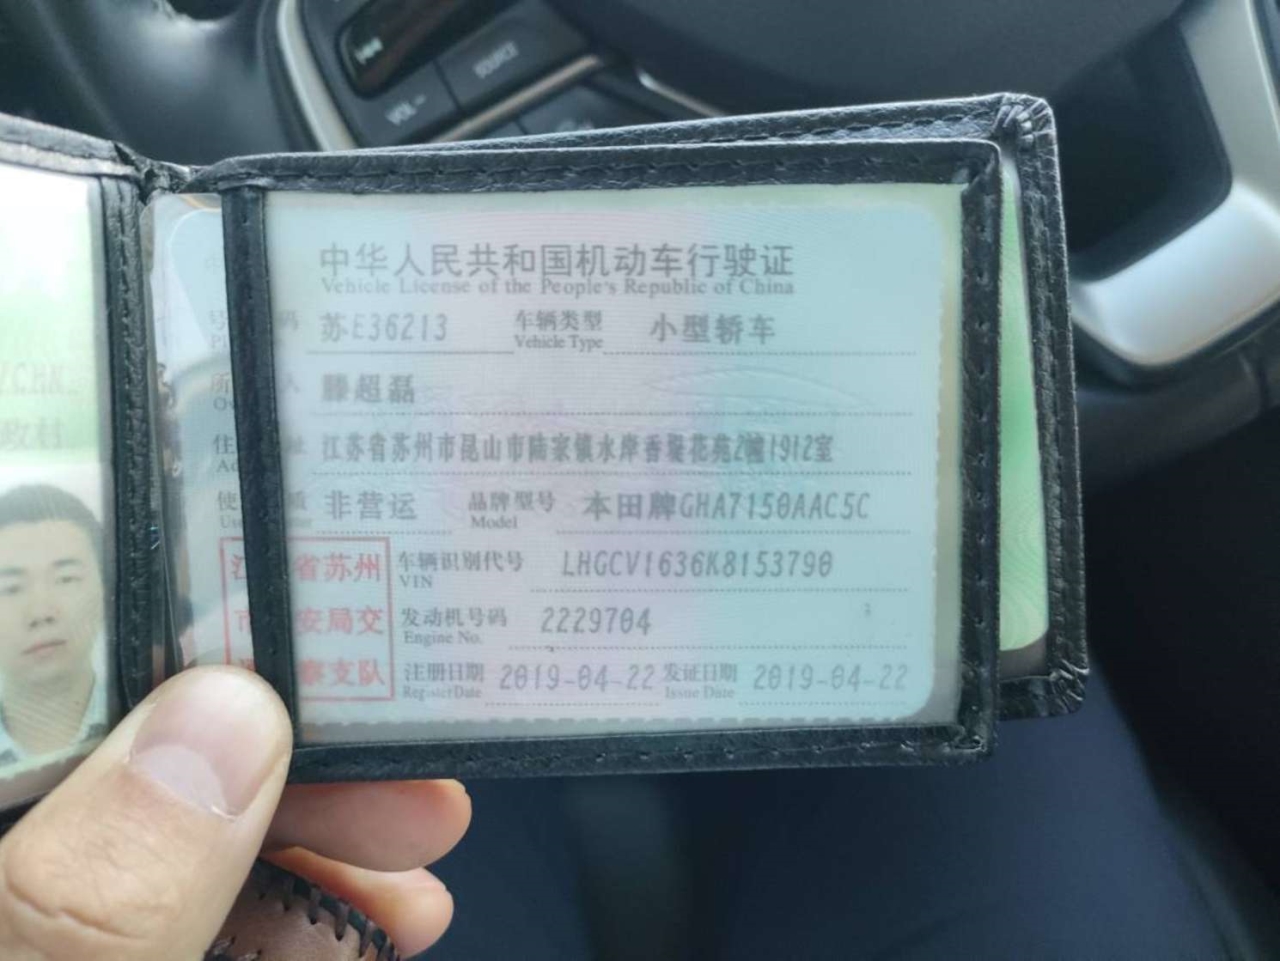 SOURCE
VOL -
中华人民共和国机动车行驶证
Vehicle License of the People's Republic of China
号 码 苏E36213 车辆类型 小型轿车
Vehicle Type
所 人 滕超磊
住 址 江苏省苏州市昆山市陆家镇水岸香堤花苑2幢1912室
使 质 非营运 品牌型号 本田牌GHA7150AAC5C
Model
车辆识别代号 LHGCV1636K8153790
VIN
发动机号码 2229704
Engine No.
注册日期 2019-04-22 发证日期 2019-04-22
Register Date Issue Date
江 省苏州
市 安局交
察支队
政村